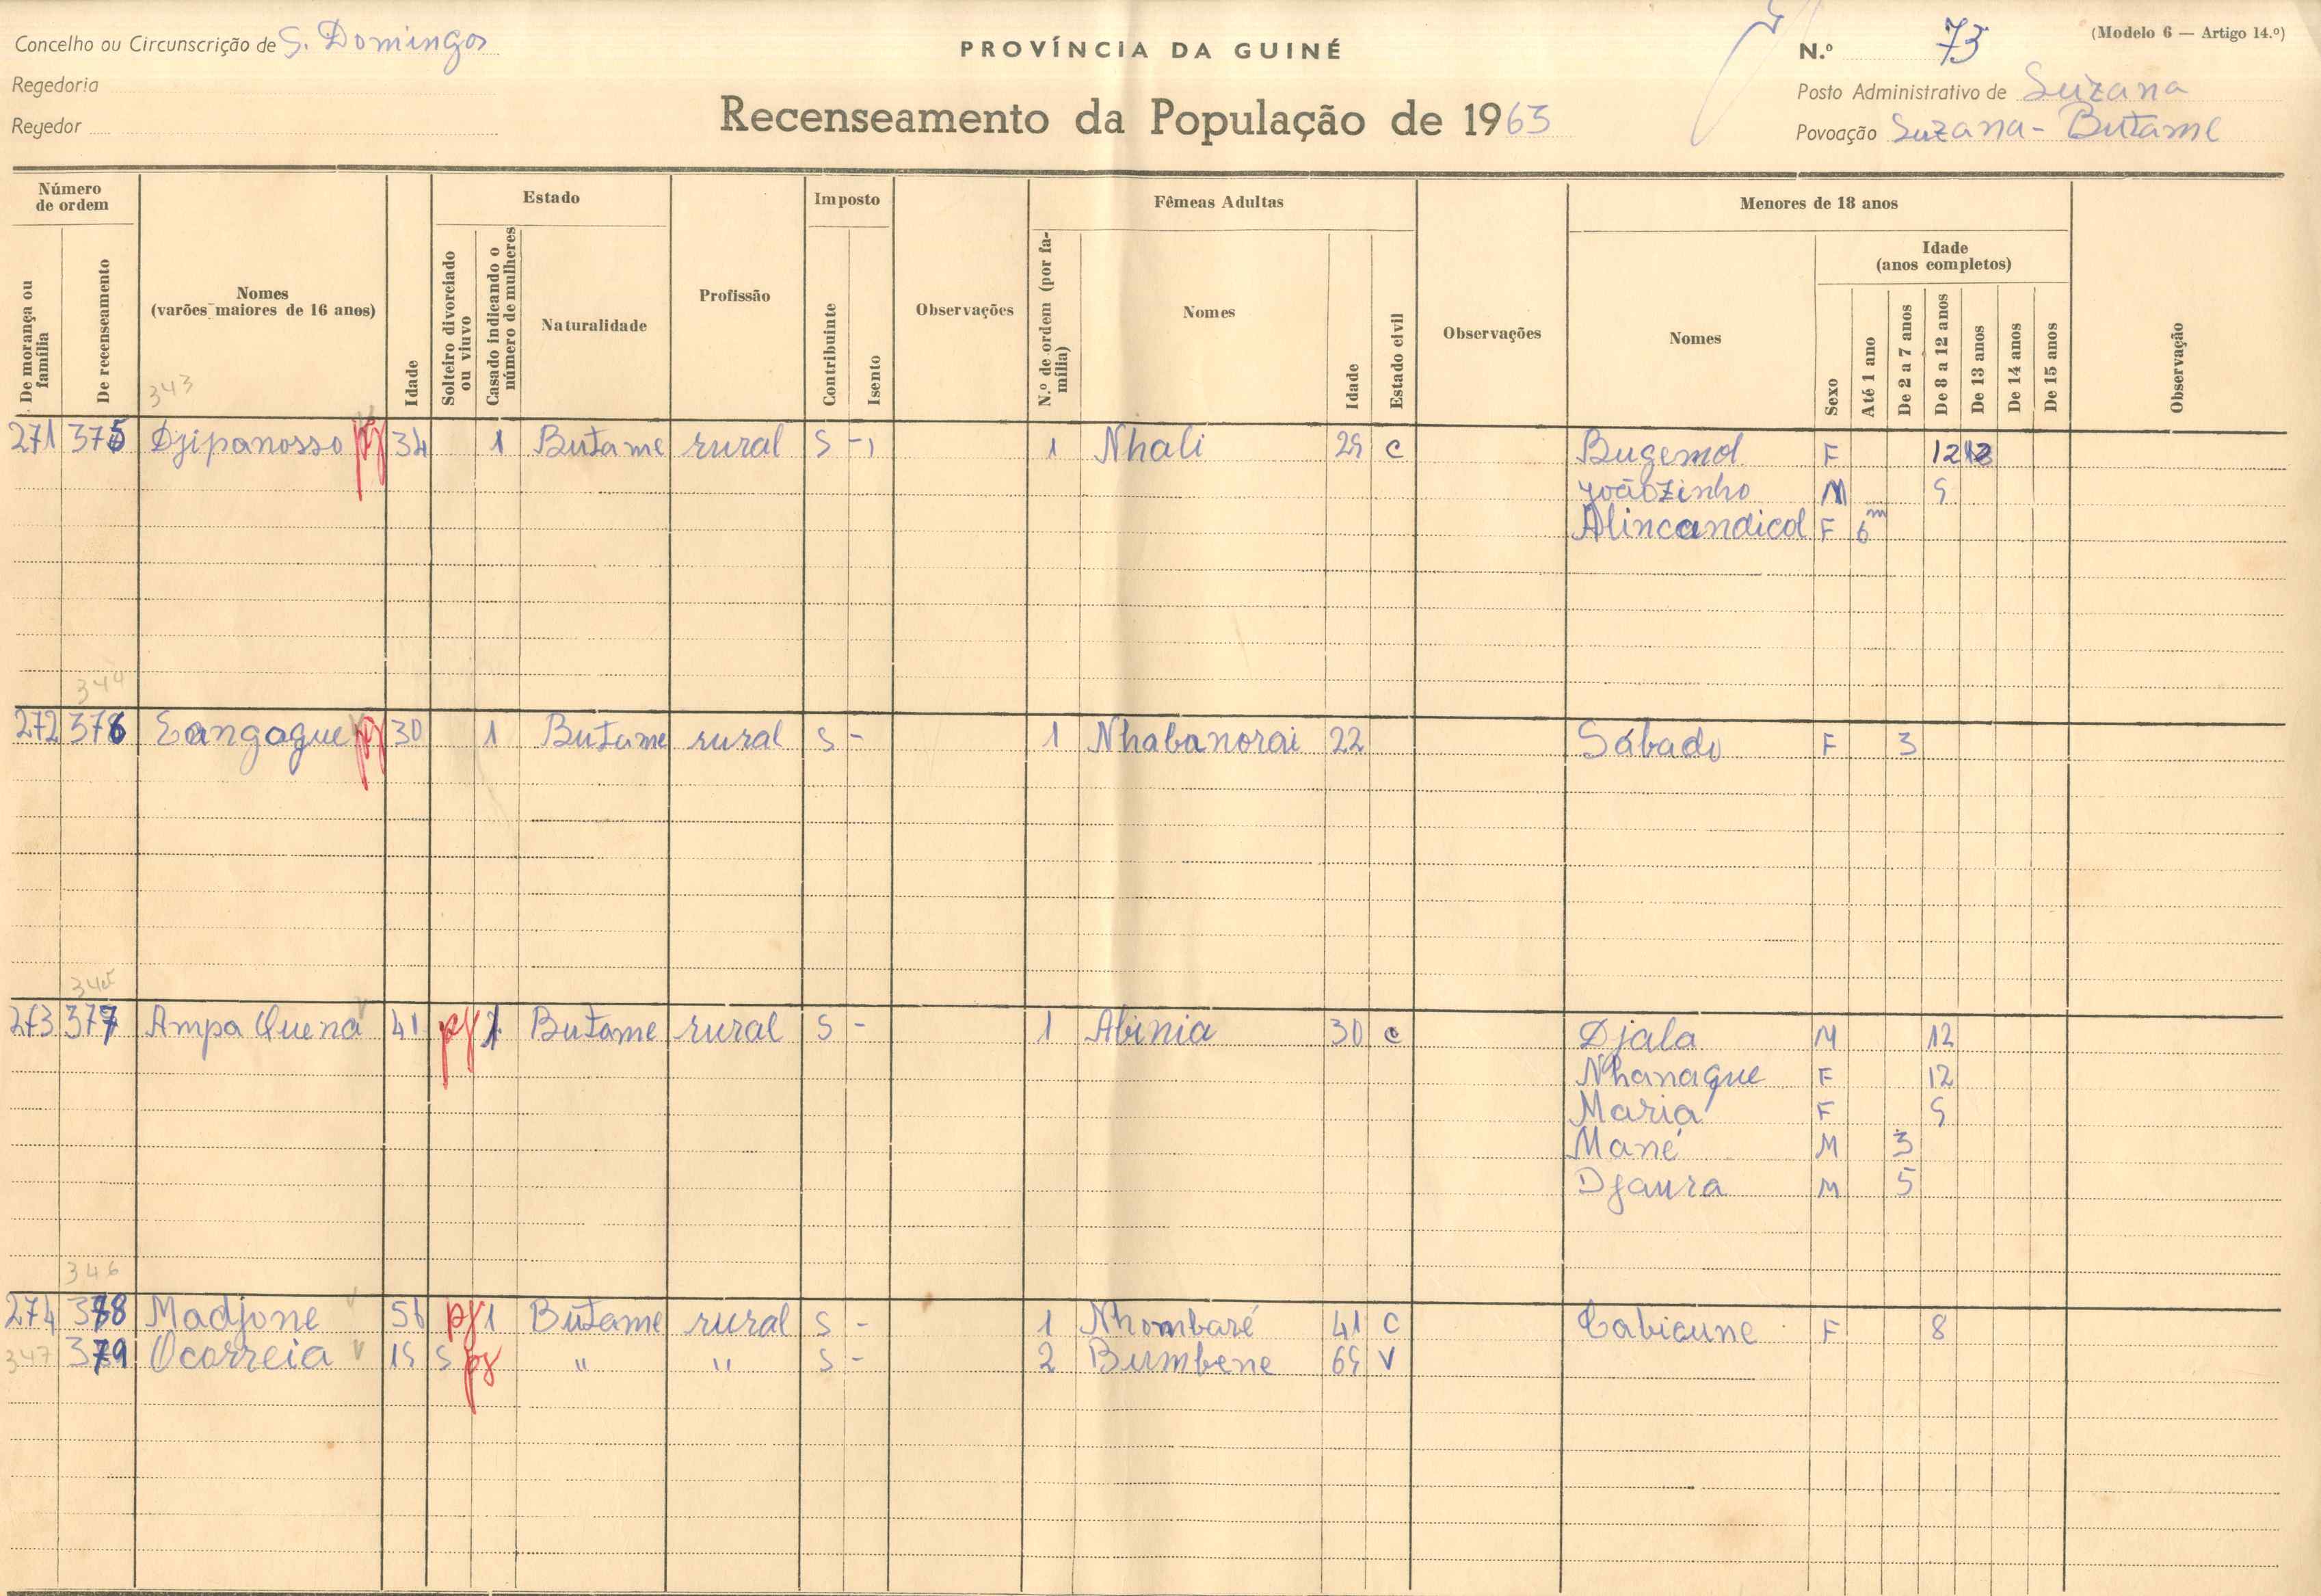 Concelho ou Circunscrição de S. Domingos
PROVÍNCIA DA GUINÉ
N.º 73
(Modelo 6 — Artigo 14.º)
Regedoria
Posto Administrativo de Suzana
Recenseamento da População de 1963
Regedor
Povoação Suzana - Butame
Número de ordem
De morança ou família
De recenseamento
Nomes
(varões maiores de 16 anos)
Idade
Estado
Solteiro divorciado ou viuvo
Casado indicando o número de mulheres
Naturalidade
Profissão
Imposto
Contribuinte
Isento
Observações
Fêmeas Adultas
N.º de ordem (por família)
Nomes
Idade
Estado civil
Observações
Menores de 18 anos
Nomes
Sexo
Idade
(anos completos)
Até 1 ano
De 2 a 7 anos
De 8 a 12 anos
De 13 anos
De 14 anos
De 15 anos
Observação
343
271 375 Djipanosso pg 34 1 Butame rural S - 1 Nhali 29 C Bugemol F 12
Joãozinho M 9
Alincandicol F 6m
344
272 376 Eangague pg 30 1 Butame rural S - 1 Nhabanorai 22 Sábado F 3
345
273 377 Ampa Quena 41 pg 1 Butame rural S - 1 Abinia 30 C Djala M 12
Nhanague F 12
Maria F 9
Mané M 3
Djaura M 5
346
274 378 Madjone 56 pg 1 Butame rural S - 1 Nhombaré 41 C Cabicune F 8
347 379 Ocorreia 19 S pg " " S - 2 Bumbene 69 V